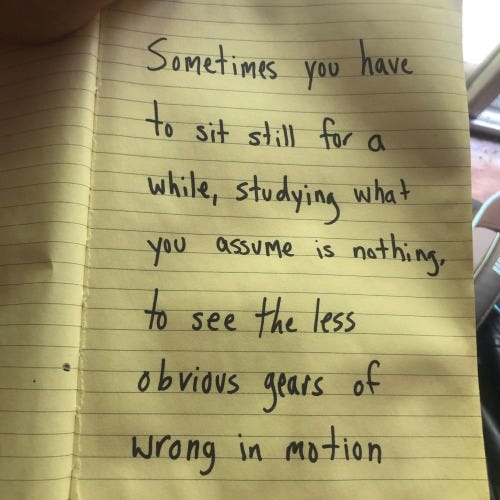 Sometimes you have
to sit still for a
while, studying what
you assume is nothing,
to see the less
obvious gears of
wrong in motion